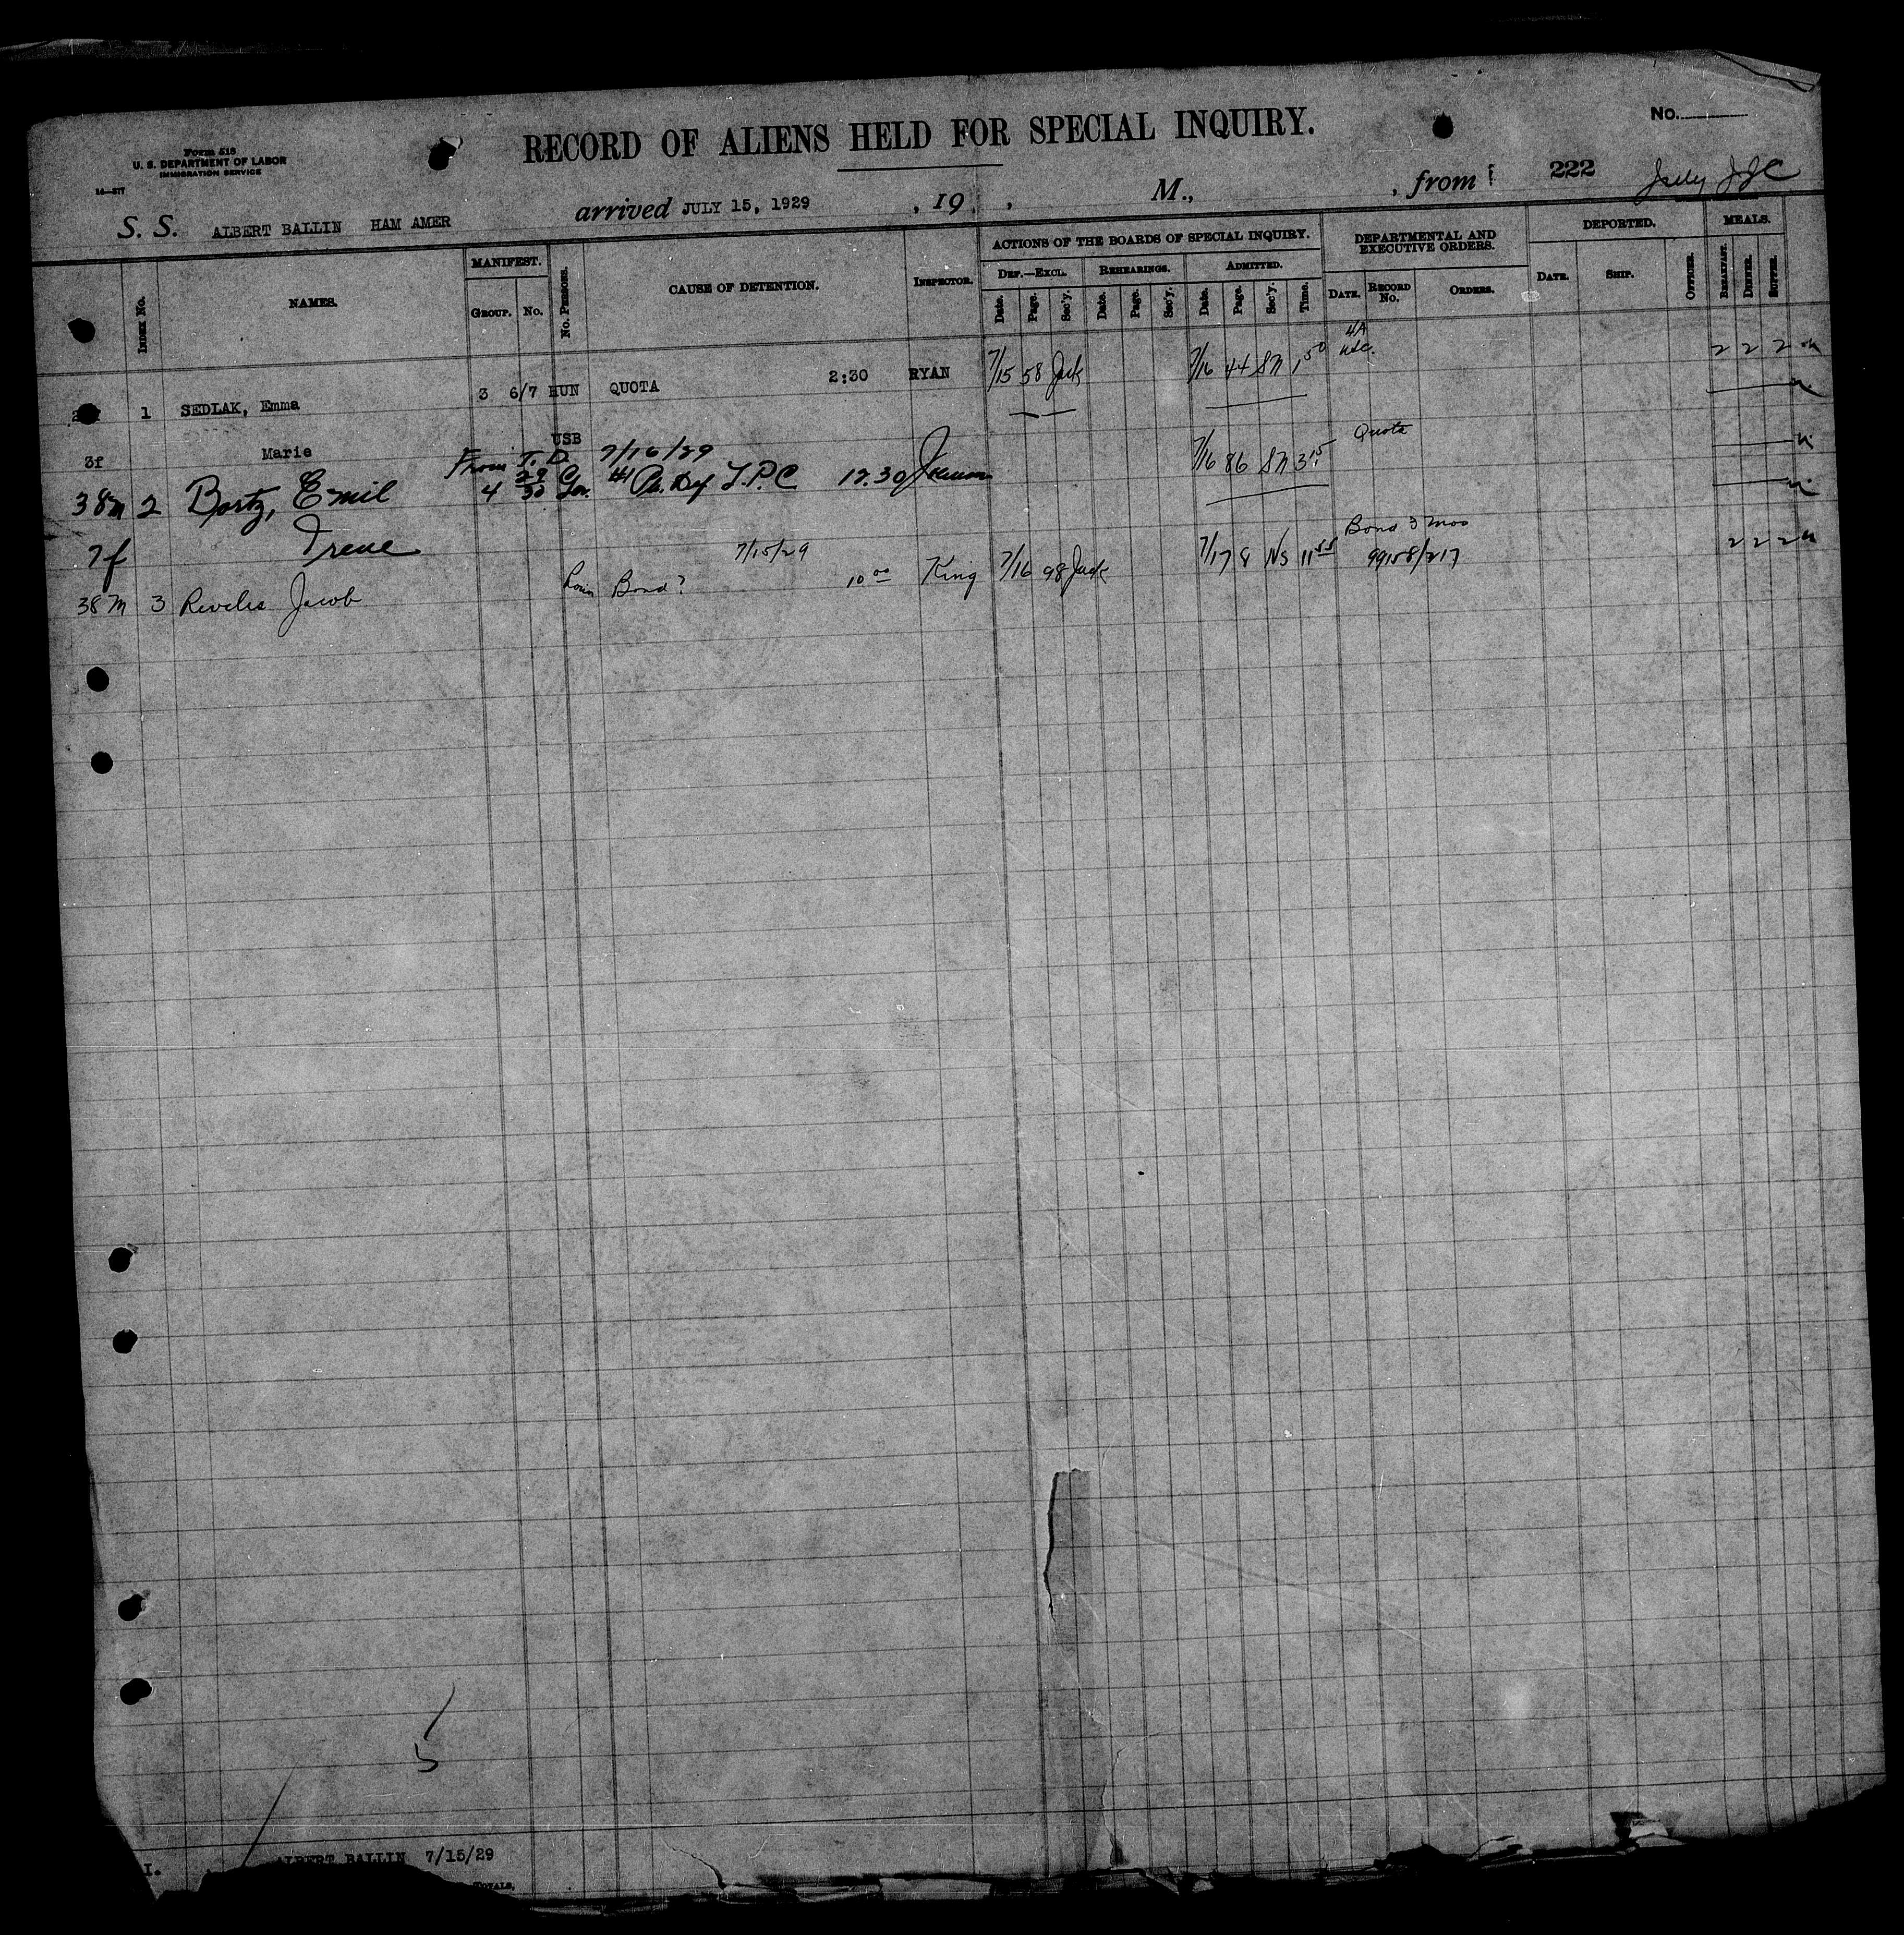 RECORD OF ALIENS HELD FOR SPECIAL INQUIRY.
No.
Form 518
U. S. DEPARTMENT OF LABOR
IMMIGRATION SERVICE
14—577
S. S. ALBERT BALLIN HAM AMER arrived JULY 15, 1929 , 19 , M., , from 222
INDEX No. NAMES. MANIFEST. GROUP. No. No. PERSONS. CAUSE OF DETENTION. INSPECTOR.
ACTIONS OF THE BOARDS OF SPECIAL INQUIRY.
DEF.—EXCL. REHEARINGS. ADMITTED.
Date. Page. Sec'y. Date. Page. Sec'y. Date. Page. Sec'y. Time.
DEPARTMENTAL AND EXECUTIVE ORDERS.
DATE. RECORD No. ORDERS.
DEPORTED.
DATE. SHIP. OFFICER.
MEALS.
BREAKFAST. DINNER. SUPPER.
1 SEDLAK, Emma 3 6/7 HUN QUOTA 2:30 RYAN 7/15 58 Jack 7/16 44 SN 1 50 4A 2 2 2
3f Marie USB
From T. D. 7/16/29
38m 2 Bortz, Emil 4 29 30 12.30 Johnson 7/16 86 SN 3 15 Quota
7f Irene
7/15/29
38 M 3 Reveles Jacob Bond? 10 00 King 7/16 98 Jack 7/17 8 NS 11 55 Bond 3 mos 99158/217 2 2 2
5
I. ALBERT BALLIN 7/15/29
TOTALS,